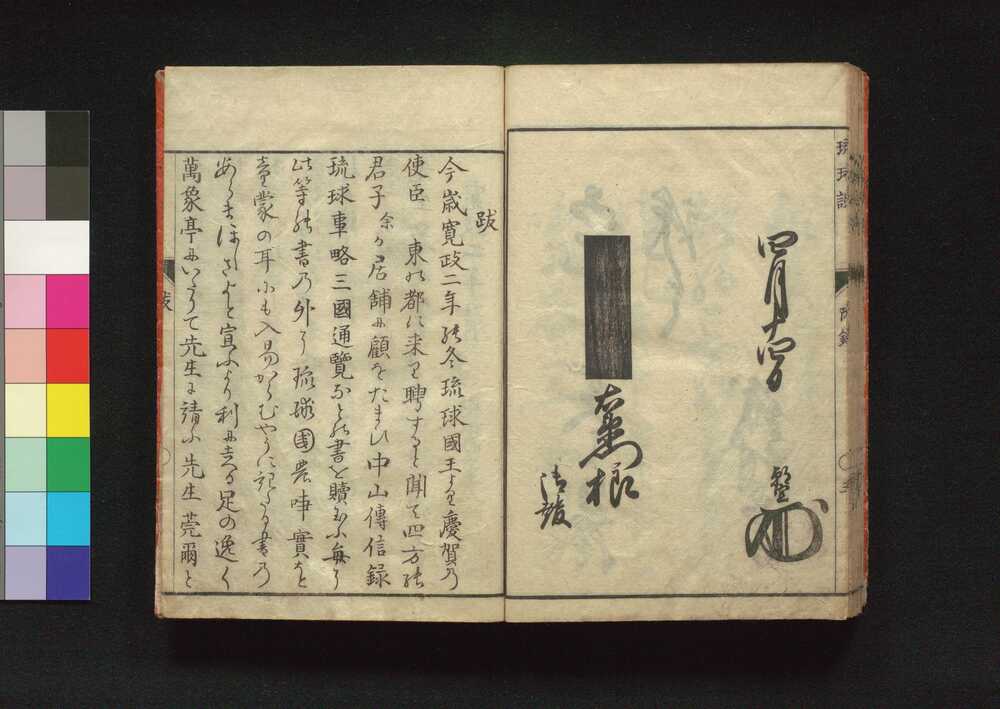 琉球談
附録
四月十四日
御返報
跋
今歳寛政二年の冬琉球國王より慶賀乃
使臣　東の都に来り聘すると聞て四方の
君子余が居舗に顧をたまひ中山傳信録
琉球事略三國通覧などの書を贖玉ふ毎に
此等の書乃外に琉球國農事實を
童蒙の耳にも入易からむやうに記たる書乃
あらまほしきよと宣ふより利に走る足の逸く
萬象亭にいたりて先生に請ふ先生莞爾と
跋